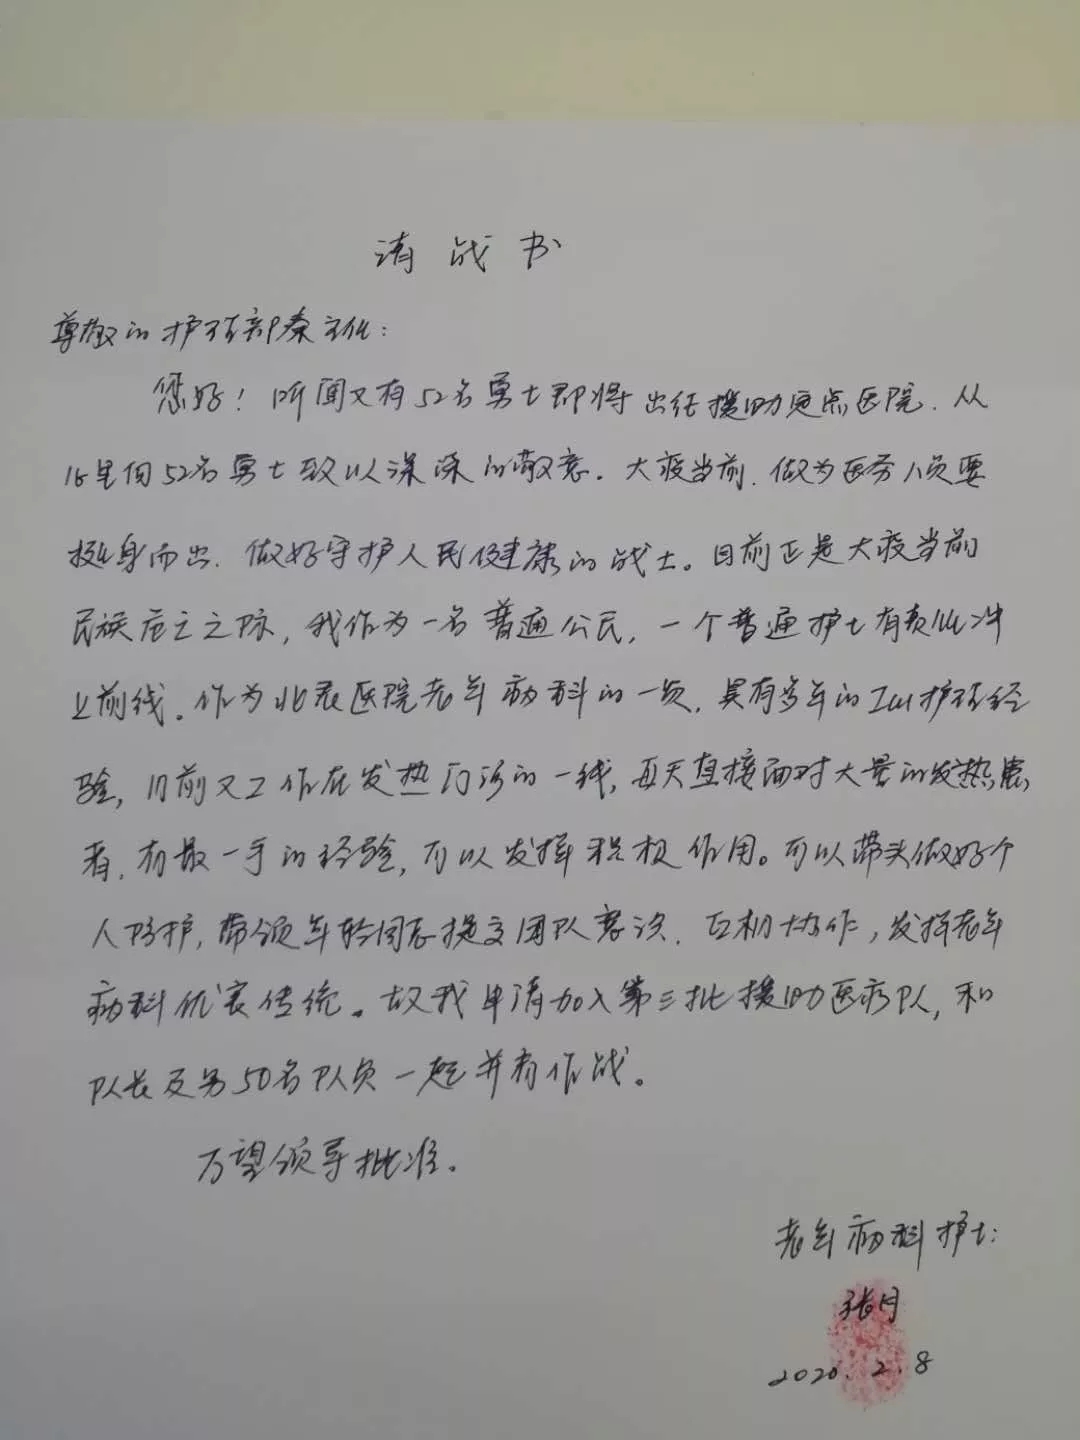 请战书
尊敬的护理部秦主任：
您好！听闻又有52名勇士即将出征援助定点医院，从
心里向52名勇士致以深深的敬意。大疫当前，做为医务人员要
挺身而出，做好守护人民健康的战士。目前正是大疫当前
民族危亡之际，我作为一名普通公民，一个普通护士有责任冲
上前线。作为北辰医院老年病科的一员，具有多年的ICU护理经
验，目前又工作在发热门诊的一线，每天直接面对大量的发热患
者，有最一手的经验，可以发挥积极作用。可以带头做好个
人防护，带领年轻同志提高团队意识，互相协作，发挥老年
病科优良传统。故我申请加入第三批援助医疗队，和
队长及另50名队员一起并肩作战。
万望领导批准。
老年病科护士：
张月
2020.2.8